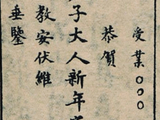 受業○○○
恭賀
子大人新年
教安伏維
垂鑒